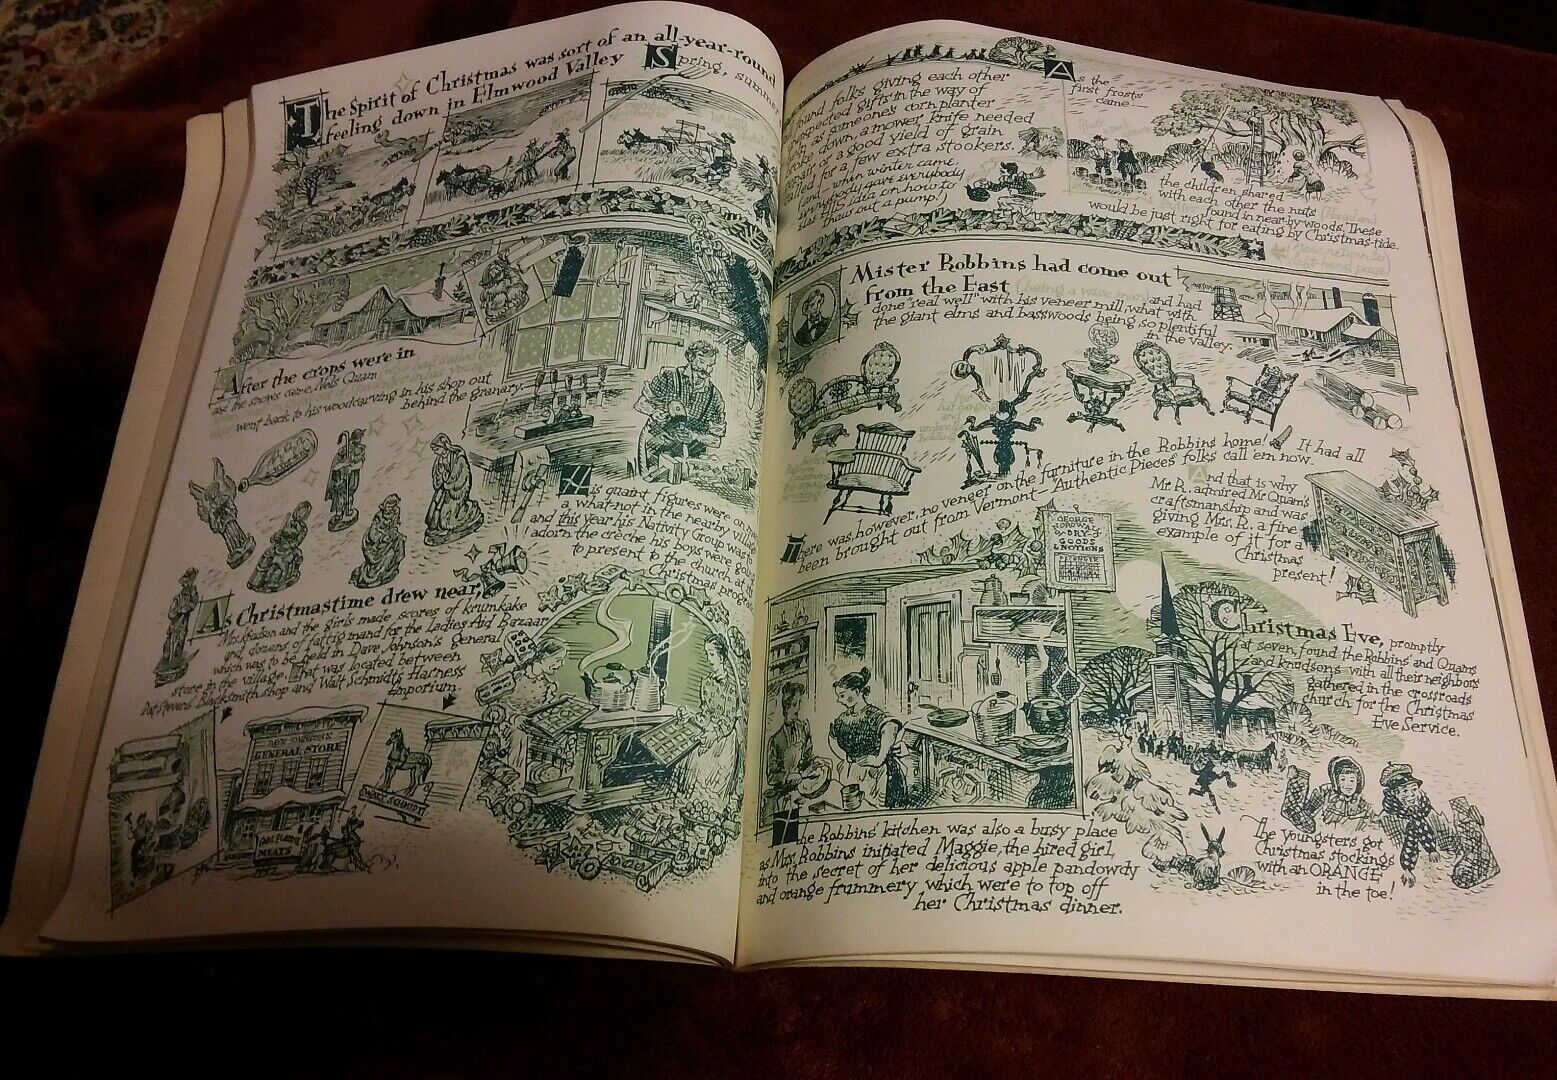 The Spirit of Christmas was sort of an all-year-round
feeling down in Elmwood Valley
Spring, summer
found folks giving each other
unexpected gifts in the way of
as someone's corn planter
broke down, a mower knife needed
repair, or a good yield of grain
called for a few extra stookers.
when winter came,
everybody gave everybody
else his idea on how to
thaw out a pump.)
As the
first frosts
came
the children shared
with each other the nuts
found in near-by woods. These
would be just right for eating by Christmas-tide.
After the crops were in
and the snows came, Nels Quam
went back to his woodcarving in his shop out
behind the granary.
His quaint figures were on
a what-not in the nearby village
and this year his Nativity Group was to
adorn the crèche his boys were going
to present to the church at
Christmas
As Christmastime drew near,
Mrs. Knudson and the girls made scores of krumkake
and dozens of fattigmand for the Ladies Aid Bazaar
which was to be held in Dave Johnson's general
store in the village. That was located between
Pat Stevens' Blacksmith shop and Walt Schmidt's Harness
Emporium.
GENERAL STORE
MEATS
WALT SCHMIDT
Mister Robbins had come out
from the East (being a wise man) and had
done "real well" with his veneer mill, what with
the giant elms and basswoods being so plentiful
in the valley.
There was, however, no veneer on the furniture in the Robbins home! It had all
been brought out from Vermont—"Authentic Pieces" folks call 'em now.
And that is why
Mr. R. admired Mr Quam's
craftsmanship and was
giving Mrs. R. a fine
example of it for a
Christmas
present!
GEORGE
DRY
GOODS
& NOTIONS
Christmas Eve, promptly
at seven, found the Robbins' and Quams
and Knudsons with all their neighbors
gathered in the crossroads
church for the Christmas
Eve Service.
The Robbins' kitchen was also a busy place
as Mrs. Robbins initiated Maggie, the hired girl,
into the secret of her delicious apple pandowdy
and orange frummery which were to top off
her Christmas dinner.
The youngsters got
Christmas stockings
with an ORANGE
in the toe!